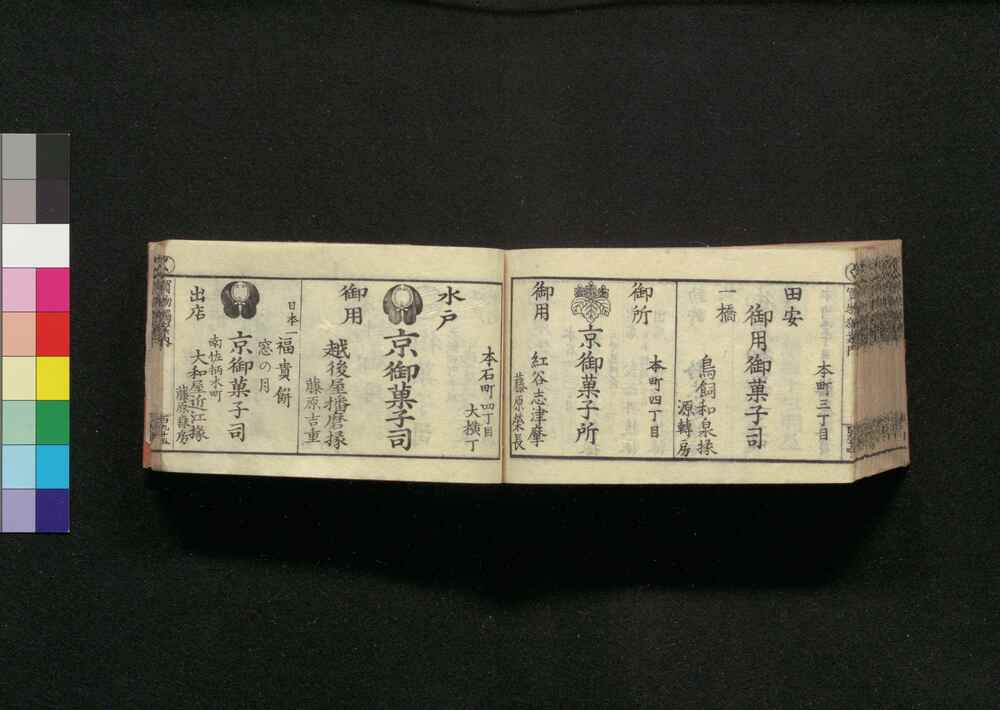 本町三丁目
田安
御用御菓子司
一橋
鳥飼和泉掾
源轉房
本町四丁目
御所
京御菓子所
御用
紅谷志津摩
藤原榮長
本石町四丁目
大横丁
水戸
京御菓子司
御用
越後屋播磨掾
藤原吉重
日本一
福貴餅
窓の月
京御菓子司
南佐柄木町
大和屋近江掾
出店